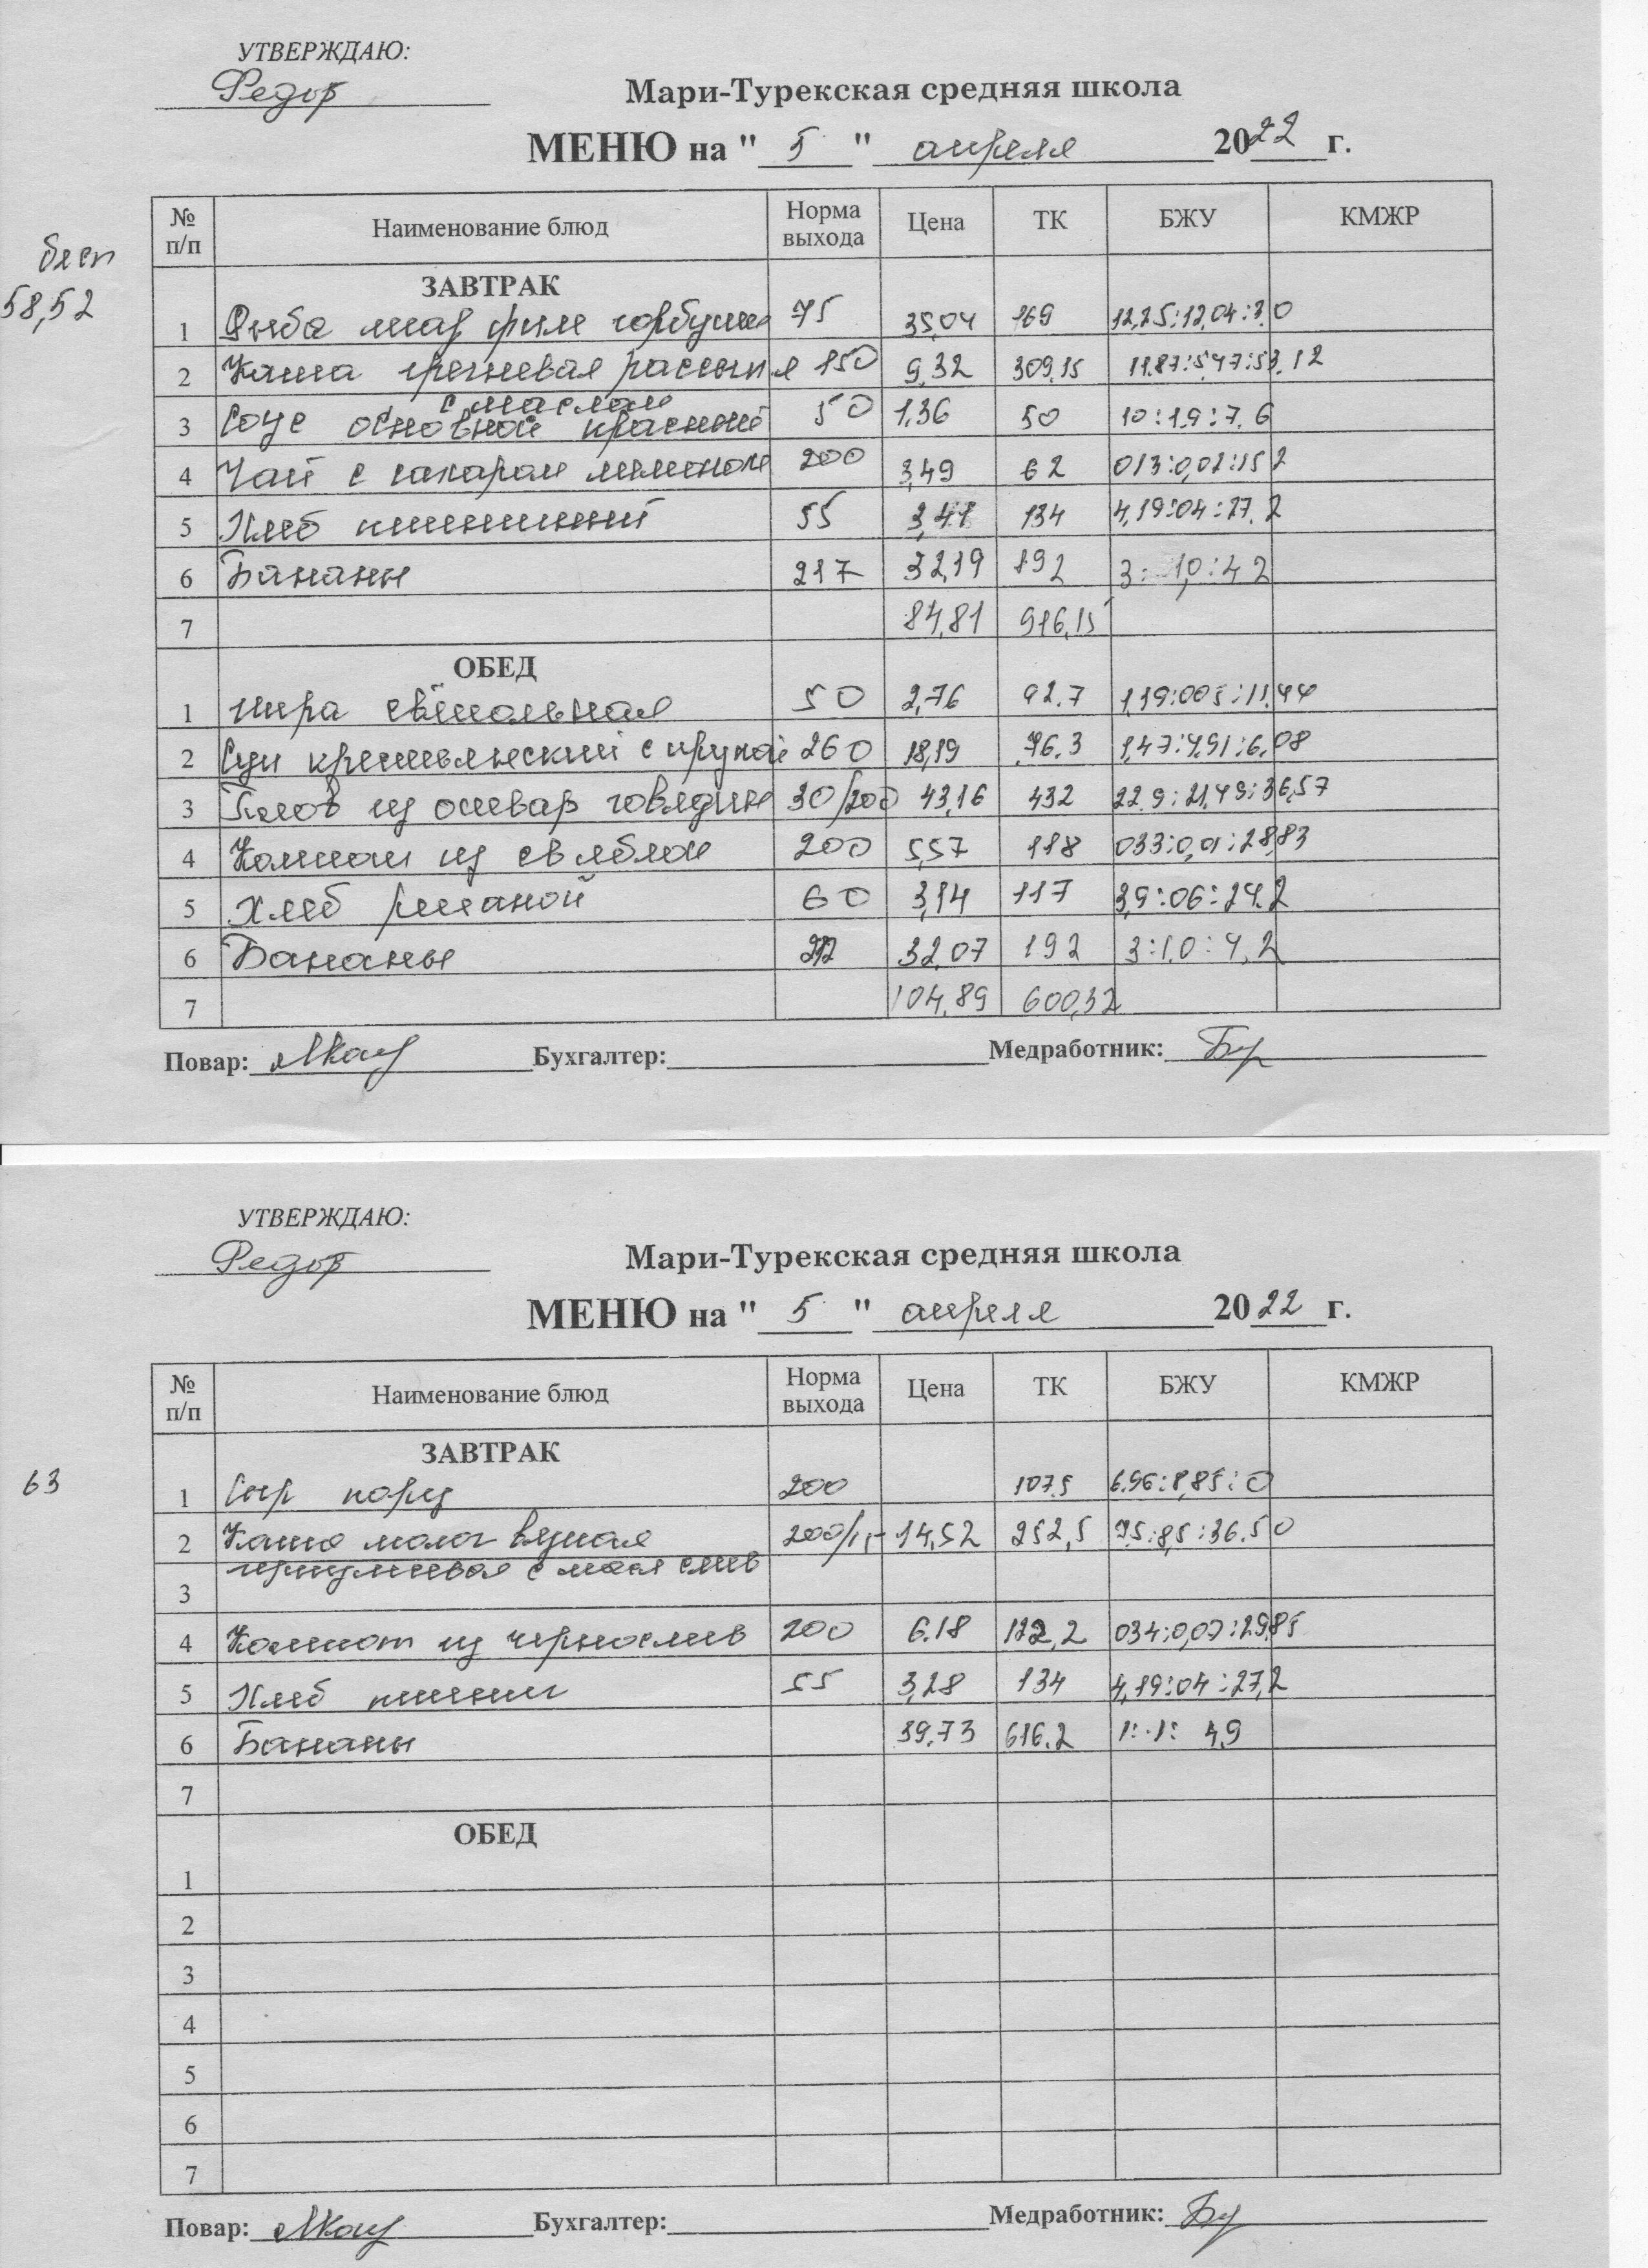 УТВЕРЖДАЮ:
Федор
Мари-Турекская средняя школа
МЕНЮ на " 5 " апреля 2022 г.
№ п/п Наименование блюд Норма выхода Цена ТК БЖУ КМЖР
бесп
58,52
ЗАВТРАК
1 Рыба филе горбуши 75 35,04 169 12,25:12,04:3,0
2 Каша гречневая рассыпч 150 9,32 309,15 11.87:5,47:53,12
с маслом
3 Соус основной красный 50 1,36 50 10:1.9:7.6
4 Чай с сахаром лимоном 200 3,49 62 013:0,02:15 2
5 Хлеб пшеничный 55 3,41 134 4,19:04:27.2
6 Бананы 217 32,19 192 3: 1,0:42
7 84,81 916,15
ОБЕД
1 икра свёкольная 50 2,76 92.7 1,19:005:11,44
2 Суп крестьянский с крупой 260 18,19 96.3 1,47:4,91:6,08
3 Плов из отвар говядин 30/200 43,16 432 22.9:21,49:36,57
4 Компот из св яблок 200 5,57 118 033:0,01:28,83
5 Хлеб ржаной 60 3,14 117 3,9:06:24.2
6 Бананы 32,07 192 3:1.0:4,2
7 104,89 600,32
Повар: Бухгалтер: Медработник:
УТВЕРЖДАЮ:
Федор
Мари-Турекская средняя школа
МЕНЮ на " 5 " апреля 2022 г.
№ п/п Наименование блюд Норма выхода Цена ТК БЖУ КМЖР
63
ЗАВТРАК
1 Сыр порц 200 107.5 6.96:8,85:0
2 Каша молоч вязкая 14,52 252,5 7.5:8,5:36.50
3 с масл слив
4 Компот из чернослив 200 6.18 122,2 034:0,07:29,85
5 Хлеб пшенич 55 3,28 134 4,19:04:27,2
6 Бананы 39,73 616.2 1:1: 4,9
7
ОБЕД
1
2
3
4
5
6
7
Повар: Бухгалтер: Медработник: